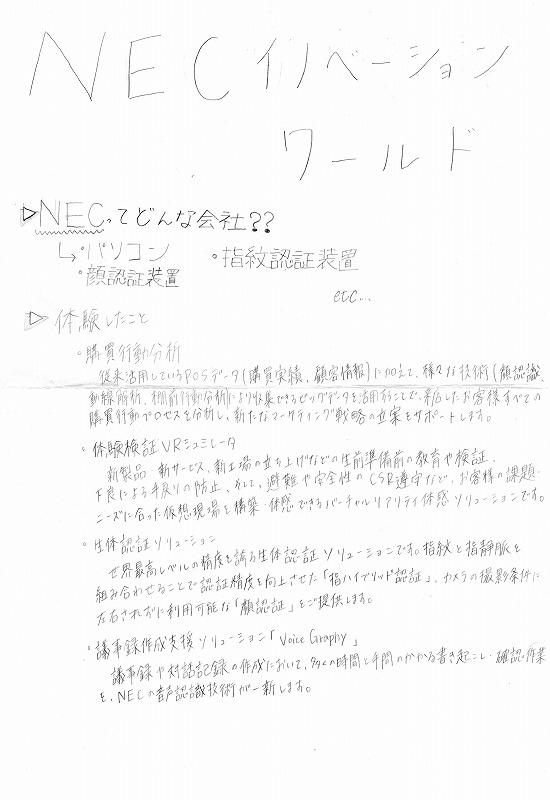 NECイノベーション
ワールド
▷NECってどんな会社??
↳・パソコン ・指紋認証装置
・顔認証装置
etc...
▷体験したこと
・購買行動分析
従来活用しているPOSデータ(購買実績、顧客情報)に加えて、様々な技術(顔認識、
動線解析、棚前行動分析)により収集できるビッグデータを活用行うことで、来店したお客様すべての
購買行動プロセスを分析し、新たなマーケティング戦略の立案をサポートします。
・体験検証VRシュミレータ
新製品・新サービス、新工場の立ち上げなどの生前準備前の教育や検証、
不良による手戻りの防止、そして、避難や安全性のCSR遵守など、お客様の課題・
ニーズに合った仮想現場を構築・体感できるバーチャルリアリティ体感ソリューションです。
・生体認証ソリューション
世界最高レベルの精度を誇る生体認証ソリューションです。指紋と指静脈を
組み合わせることで認証精度を向上させた「指ハイブリッド認証」、カメラの撮影条件に
左右されずに利用可能な「顔認証」をご提供します。
・議事録作成支援ソリューション「VoiceGraphy」
議事録や対話記録の作成において、多くの時間と手間のかかる書き起こし・確認作業
を、NECの音声認識技術が一新します。